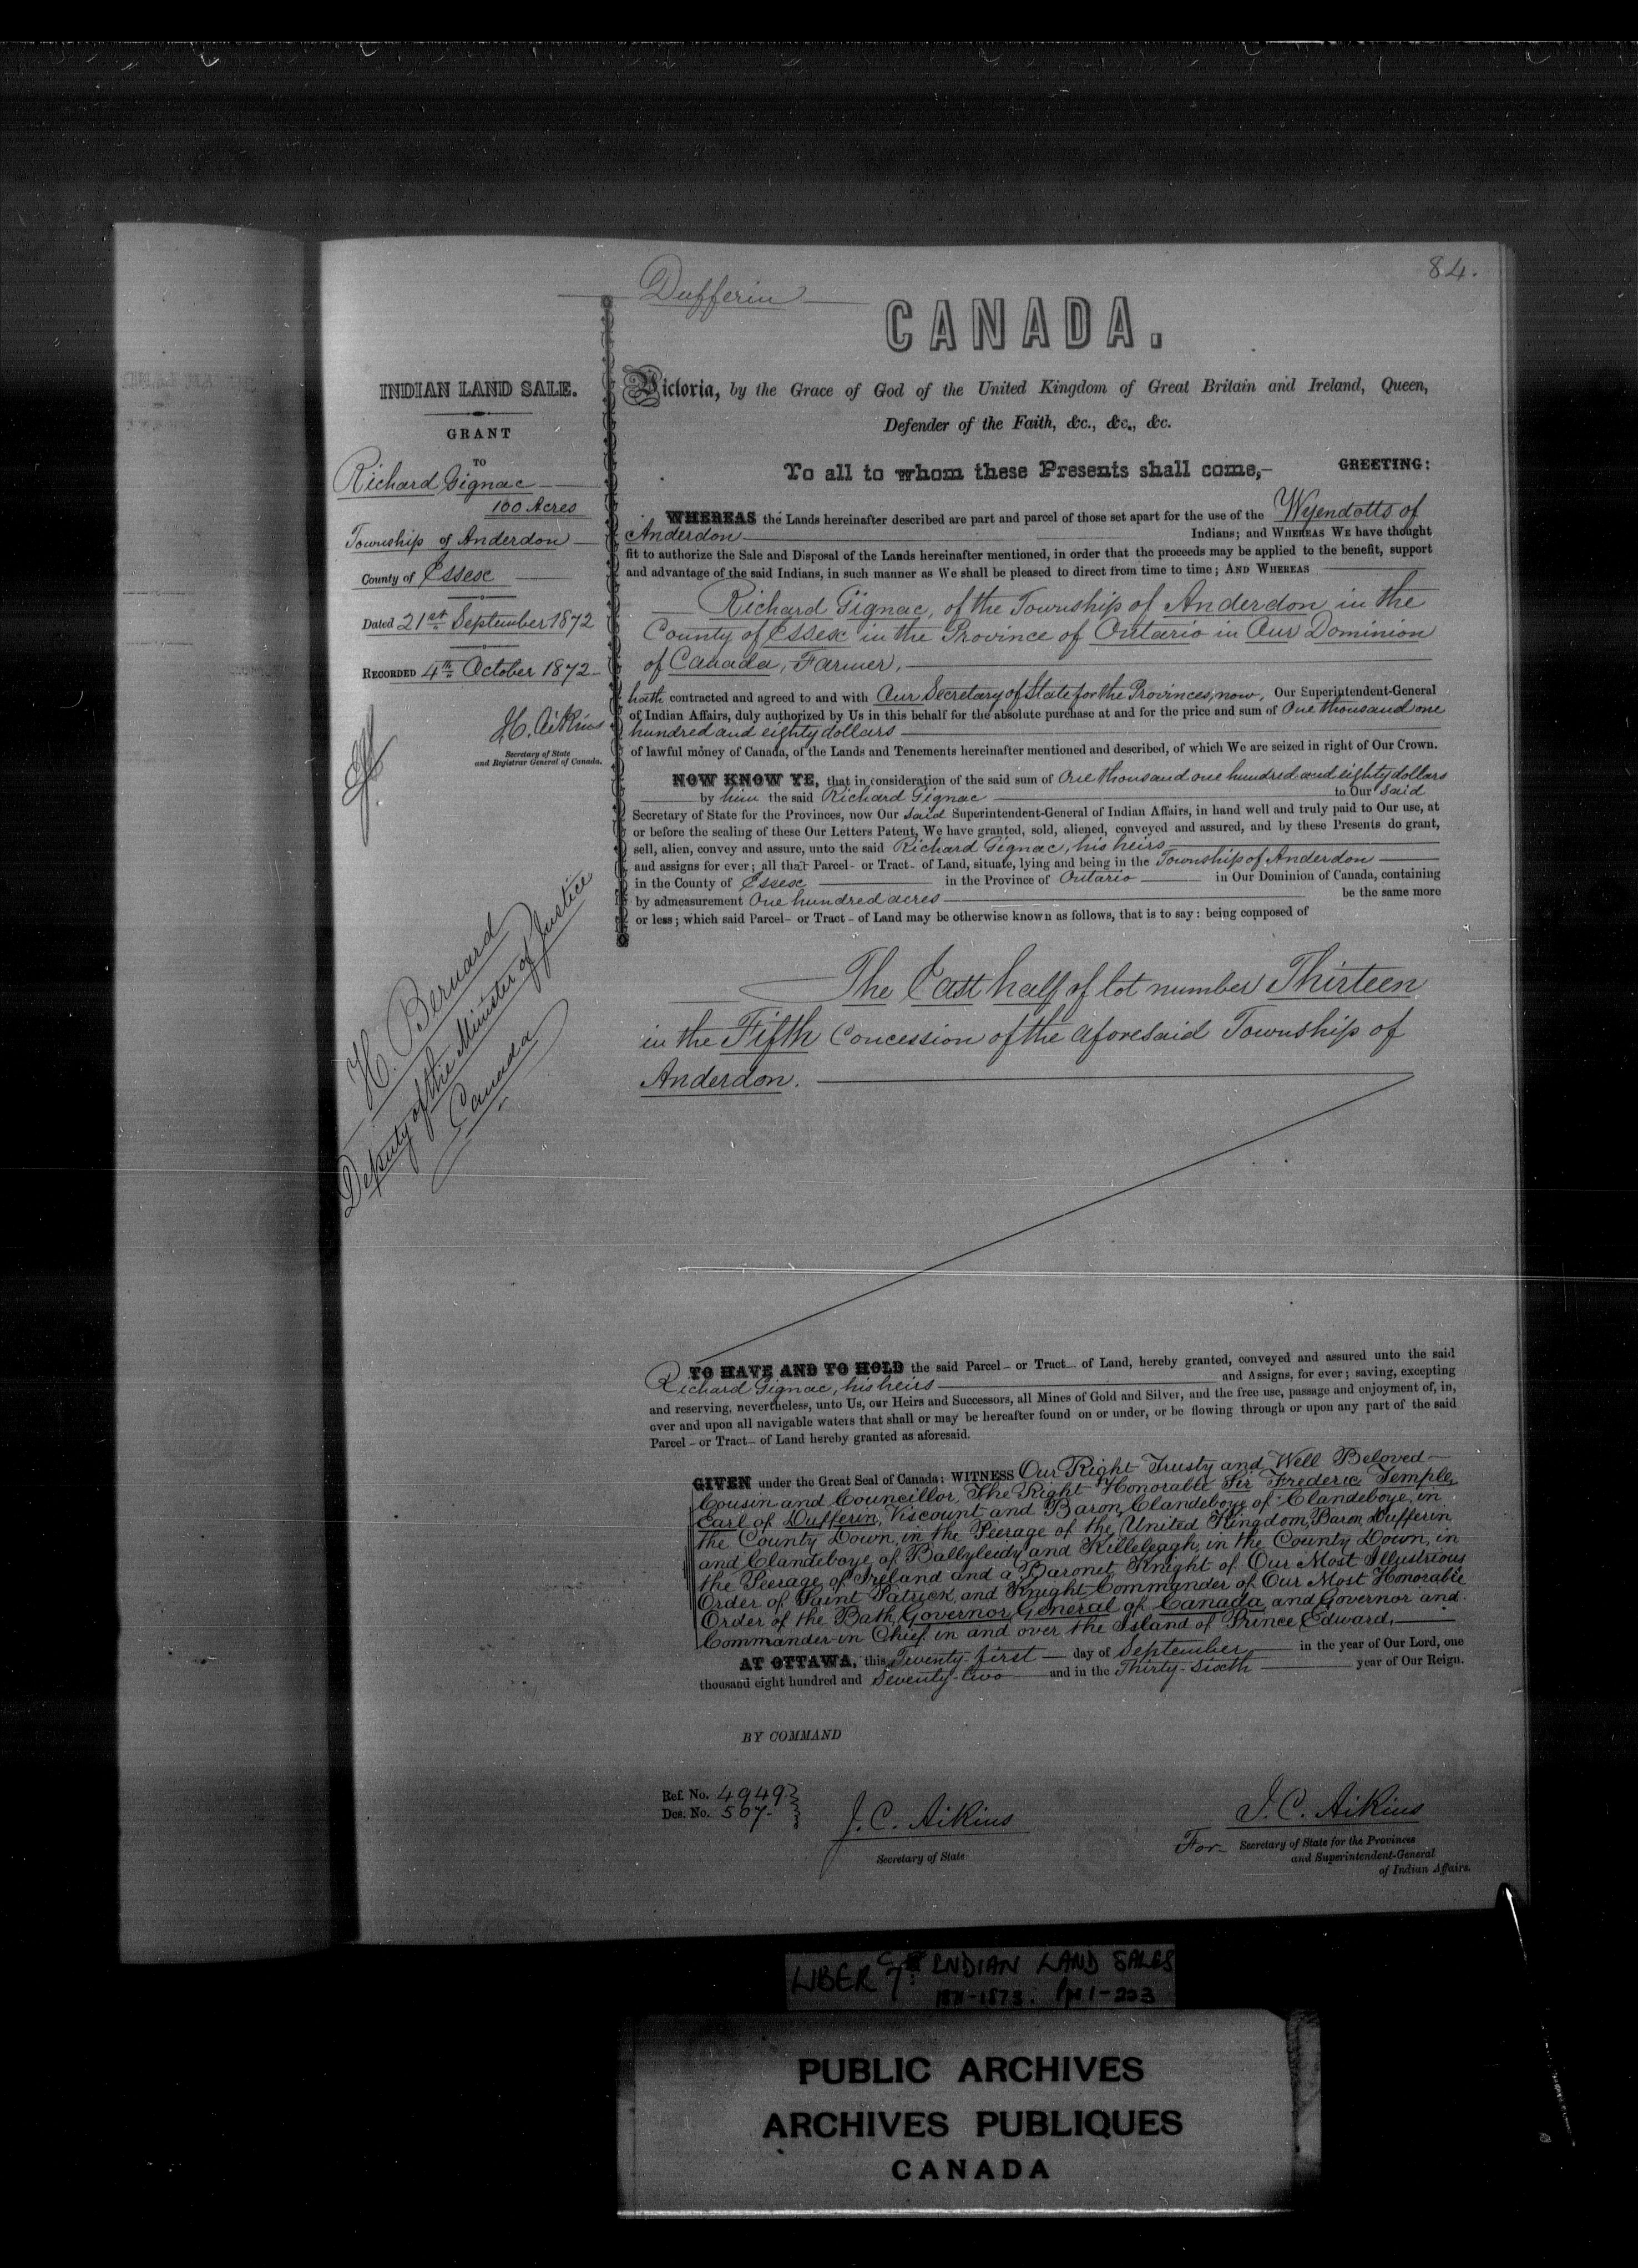 84.
Dufferin
CANADA.
INDIAN LAND SALE.
GRANT
TO
Richard Gignac
100 Acres
Township of Anderdon
County of Essex
Dated 21st September 1872
RECORDED 4th October 1872
H. Aikins
Secretary of State
and Registrar General of Canada.
H. Bernard
Deputy of the Minister of Justice
Canada
Victoria, by the Grace of God of the United Kingdom of Great Britain and Ireland, Queen,
Defender of the Faith, &c., &c., &c.
To all to whom these Presents shall come,— GREETING:
WHEREAS the Lands hereinafter described are part and parcel of those set apart for the use of the Wyendotts of
Anderdon Indians; and WHEREAS WE have thought
fit to authorize the Sale and Disposal of the Lands hereinafter mentioned, in order that the proceeds may be applied to the benefit, support
and advantage of the said Indians, in such manner as We shall be pleased to direct from time to time; AND WHEREAS
Richard Gignac, of the Township of Anderdon in the
County of Essex in the Province of Ontario in Our Dominion
of Canada, Farmer,
hath contracted and agreed to and with Our Secretary of State for the Provinces, now, Our Superintendent-General
of Indian Affairs, duly authorized by Us in this behalf for the absolute purchase at and for the price and sum of One thousand one
hundred and eighty dollars
of lawful money of Canada, of the Lands and Tenements hereinafter mentioned and described, of which We are seized in right of Our Crown.
NOW KNOW YE, that in consideration of the said sum of One thousand one hundred and eighty dollars
by him the said Richard Gignac to Our Said
Secretary of State for the Provinces, now Our Said Superintendent-General of Indian Affairs, in hand well and truly paid to Our use, at
or before the sealing of these Our Letters Patent, We have granted, sold, aliened, conveyed and assured, and by these Presents do grant,
sell, alien, convey and assure, unto the said Richard Gignac, his heirs
and assigns for ever; all that Parcel- or Tract- of Land, situate, lying and being in the Township of Anderdon
in the County of Essex in the Province of Ontario in Our Dominion of Canada, containing
by admeasurement One hundred acres be the same more
or less; which said Parcel- or Tract- of Land may be otherwise known as follows, that is to say: being composed of
The East half of lot number Thirteen
in the Fifth Concession of the aforesaid Township of
Anderdon.
TO HAVE AND TO HOLD the said Parcel- or Tract- of Land, hereby granted, conveyed and assured unto the said
Richard Gignac, his heirs and Assigns, for ever; saving, excepting
and reserving, nevertheless, unto Us, our Heirs and Successors, all Mines of Gold and Silver, and the free use, passage and enjoyment of, in,
over and upon all navigable waters that shall or may be hereafter found on or under, or be flowing through or upon any part of the said
Parcel- or Tract- of Land hereby granted as aforesaid.
GIVEN under the Great Seal of Canada: WITNESS Our Right Trusty and Well Beloved
Cousin and Councillor, The Right Honorable Sir Frederic Temple,
Earl of Dufferin, Viscount and Baron Clandeboye of Clandeboye, in
the County Down, in the Peerage of the United Kingdom, Baron Dufferin
and Clandeboye, of Ballyleidy and Killeleagh, in the County Down, in
the Peerage of Ireland and a Baronet, Knight of Our Most Illustrious
Order of Saint Patrick, and Knight Commander of Our Most Honorable
Order of the Bath, Governor General of Canada, and Governor and
Commander-in Chief in and over the Island of Prince Edward,
AT OTTAWA, this Twenty-first day of September in the year of Our Lord, one
thousand eight hundred and Seventy-two and in the Thirty-Sixth year of Our Reign.
BY COMMAND
Ref. No. 4949
Des. No. 507
J. C. Aikins
Secretary of State
J. C. Aikins
For Secretary of State for the Provinces
and Superintendent-General
of Indian Affairs.
LIBER C7: INDIAN LAND SALES
1871-1873. Pp 1-203
PUBLIC ARCHIVES
ARCHIVES PUBLIQUES
CANADA